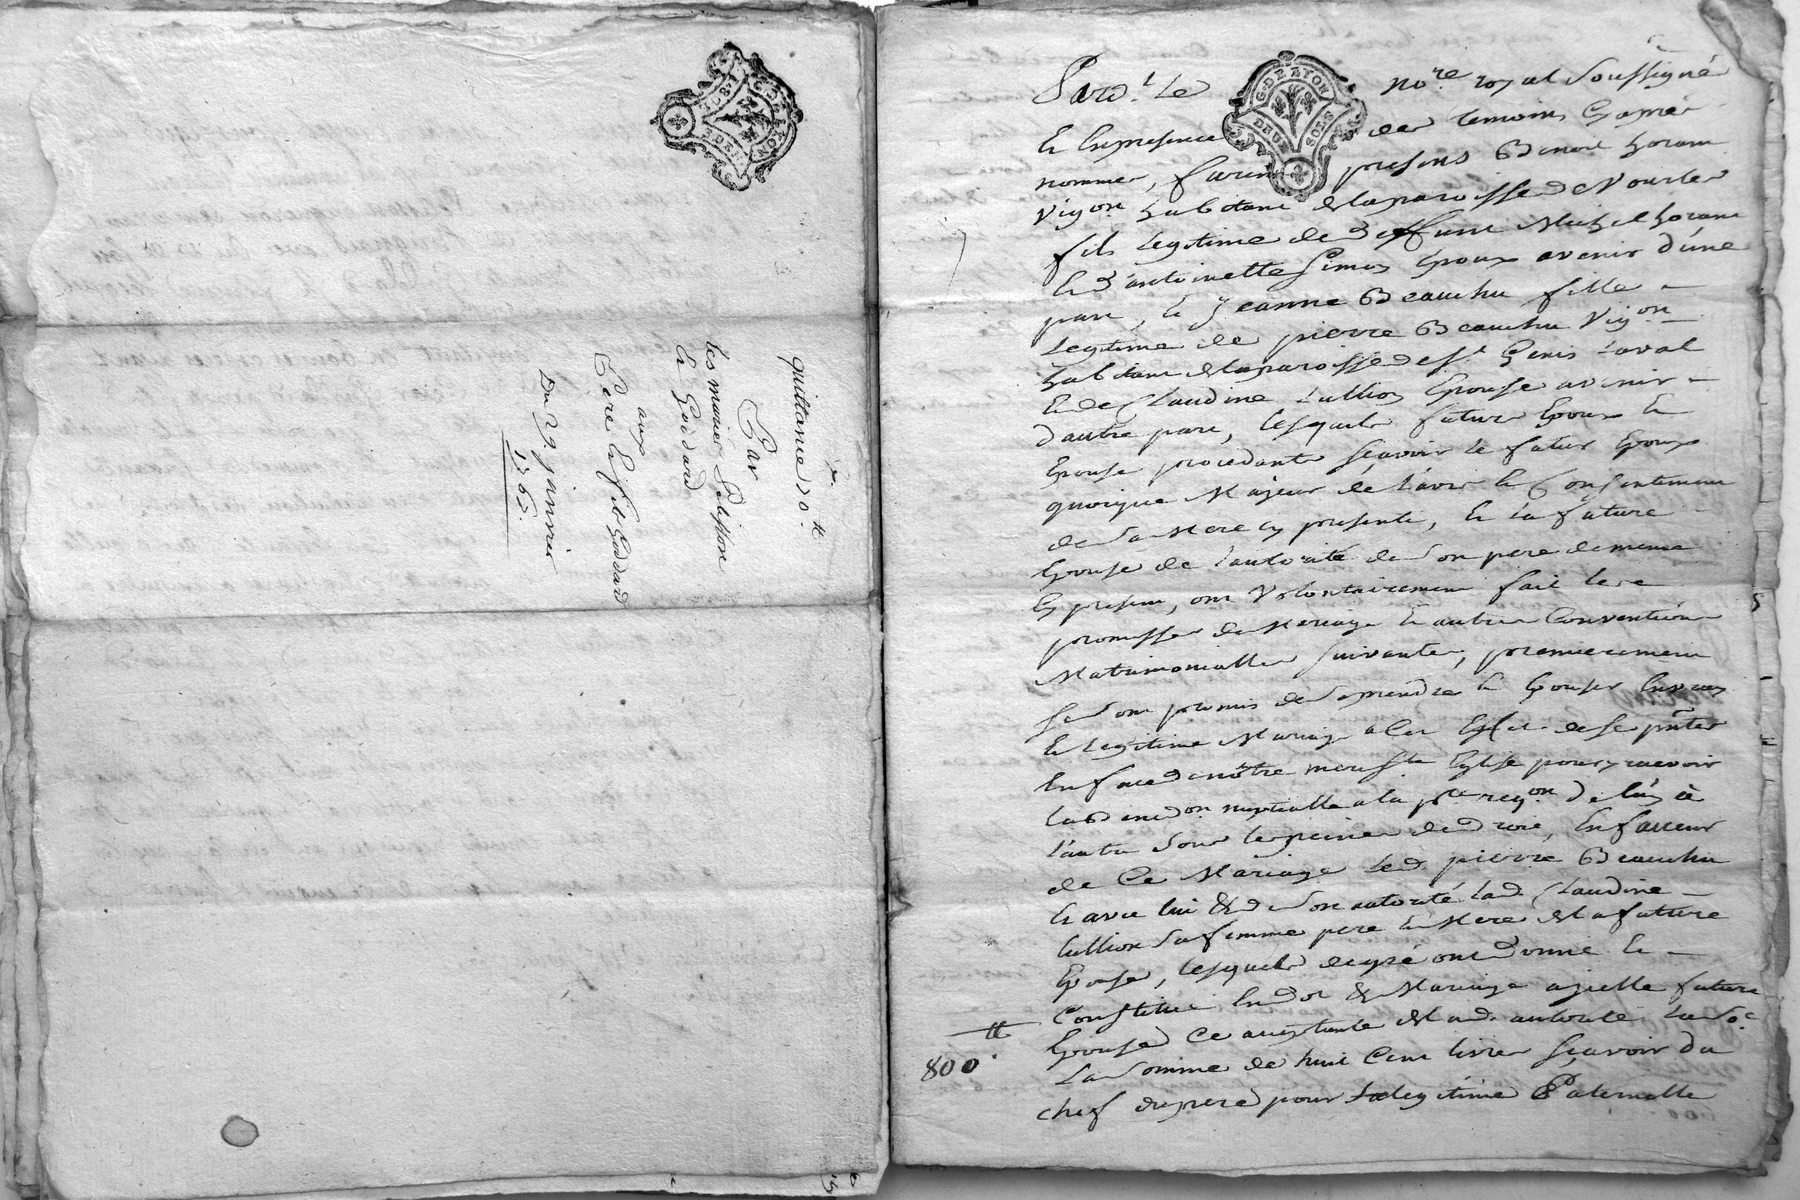 quittance 70lt
Par
les mariés Pelisson
et Godard
aux
Père et fils Godard
Du 29. janvier
1767.
G. DE LYON
DEUX SOLS
Pard.t Le nore royal soussigné
et En presence des temoins Cy apres
nommes, furent presens Benoit
Vigon habitant de la paroisse de Vourles
fils Legitime de deffunt Michel
et d'antoinette Simon Epoux avenir d'une
part, et Jeanne Beauchu fille
Legitime de pierre Beauchu Vigon
habitant de la paroisse de st Genis Laval
et de Claudine Lullion Epouse avenir
d'autre part, lesquels futurs Epoux et
Epouse procedants sçavoir le futur Epoux
quoique Majeur de l'avis et Consentement
de sa Mere cy presente, et la future
Epouse de l'autorité de son pere de meme
Cy present, ont Volontairement fait les
promesses de Mariage et autres Conventions
Matrimonialles suivantes, premierement
se sont promis de se prendre et Epouser En vray
et Legitime Mariage a Cet Effet de se pñter
En face de nôtre mere ste Eglise pour y recevoir
la Benedon nuptialle a la pre reqon de l'un à
l'autre sous les peines de droit, En faveur
de Ce Mariage led. pierre Beauchu
et avec lui & de son autorité lad. Claudine
Lullion sa femme pere et Mere de la future
Epouse, lesquels de gré ont donné et
Constitué En dot & Mariage a icelle future
Epouse Ce acceptante de lad. autorité
800lt
La somme de huit Cent livres sçavoir du
chef du pere pour sa legitime Paternelle